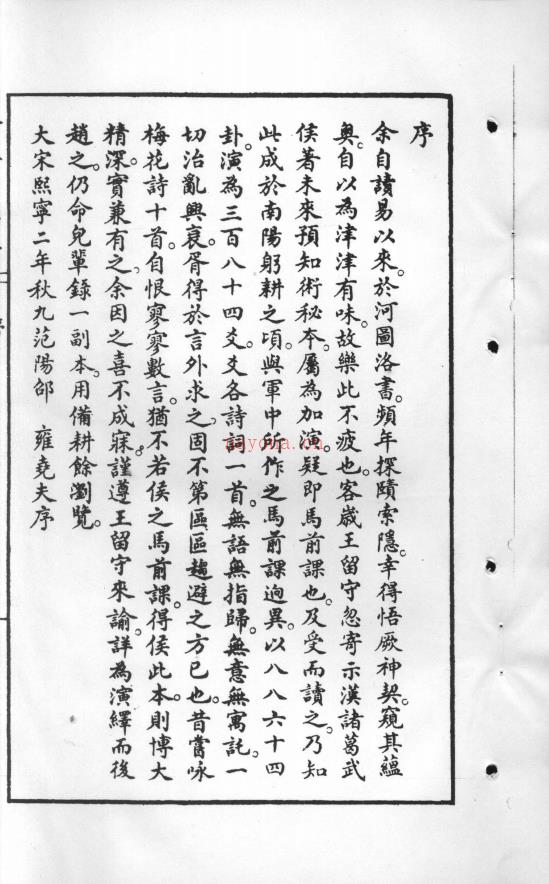 序
余自讀易以來。於河圖洛書。頻年探賾索隱。幸得悟厥神契。窺其蘊
奧。自以為津津有味。故樂此不疲也。客歲王留守忽寄示漢諸葛武
侯著未來預知術秘本。屬為加演。疑即馬前課也。及受而讀之。乃知
此成於南陽躬耕之頃。與軍中所作之馬前課迥異。以八八六十四
卦。演為三百八十四爻。爻各詩詞一首。無語無指歸。無意無寓託。一
切治亂興衰。胥得於言外求之。固不第區區趨避之方已也。昔嘗咏
梅花詩十首。自恨寥寥數言。猶不若侯之馬前課。得侯此本。則博大
精深。實兼有之。余因之喜不成寐。謹遵王留守來諭。詳為演繹而後
趙之。仍命兒輩錄一副本。用備耕餘瀏覽。
大宋熙寧二年秋九范陽邵 雍堯夫序
nayona.cn